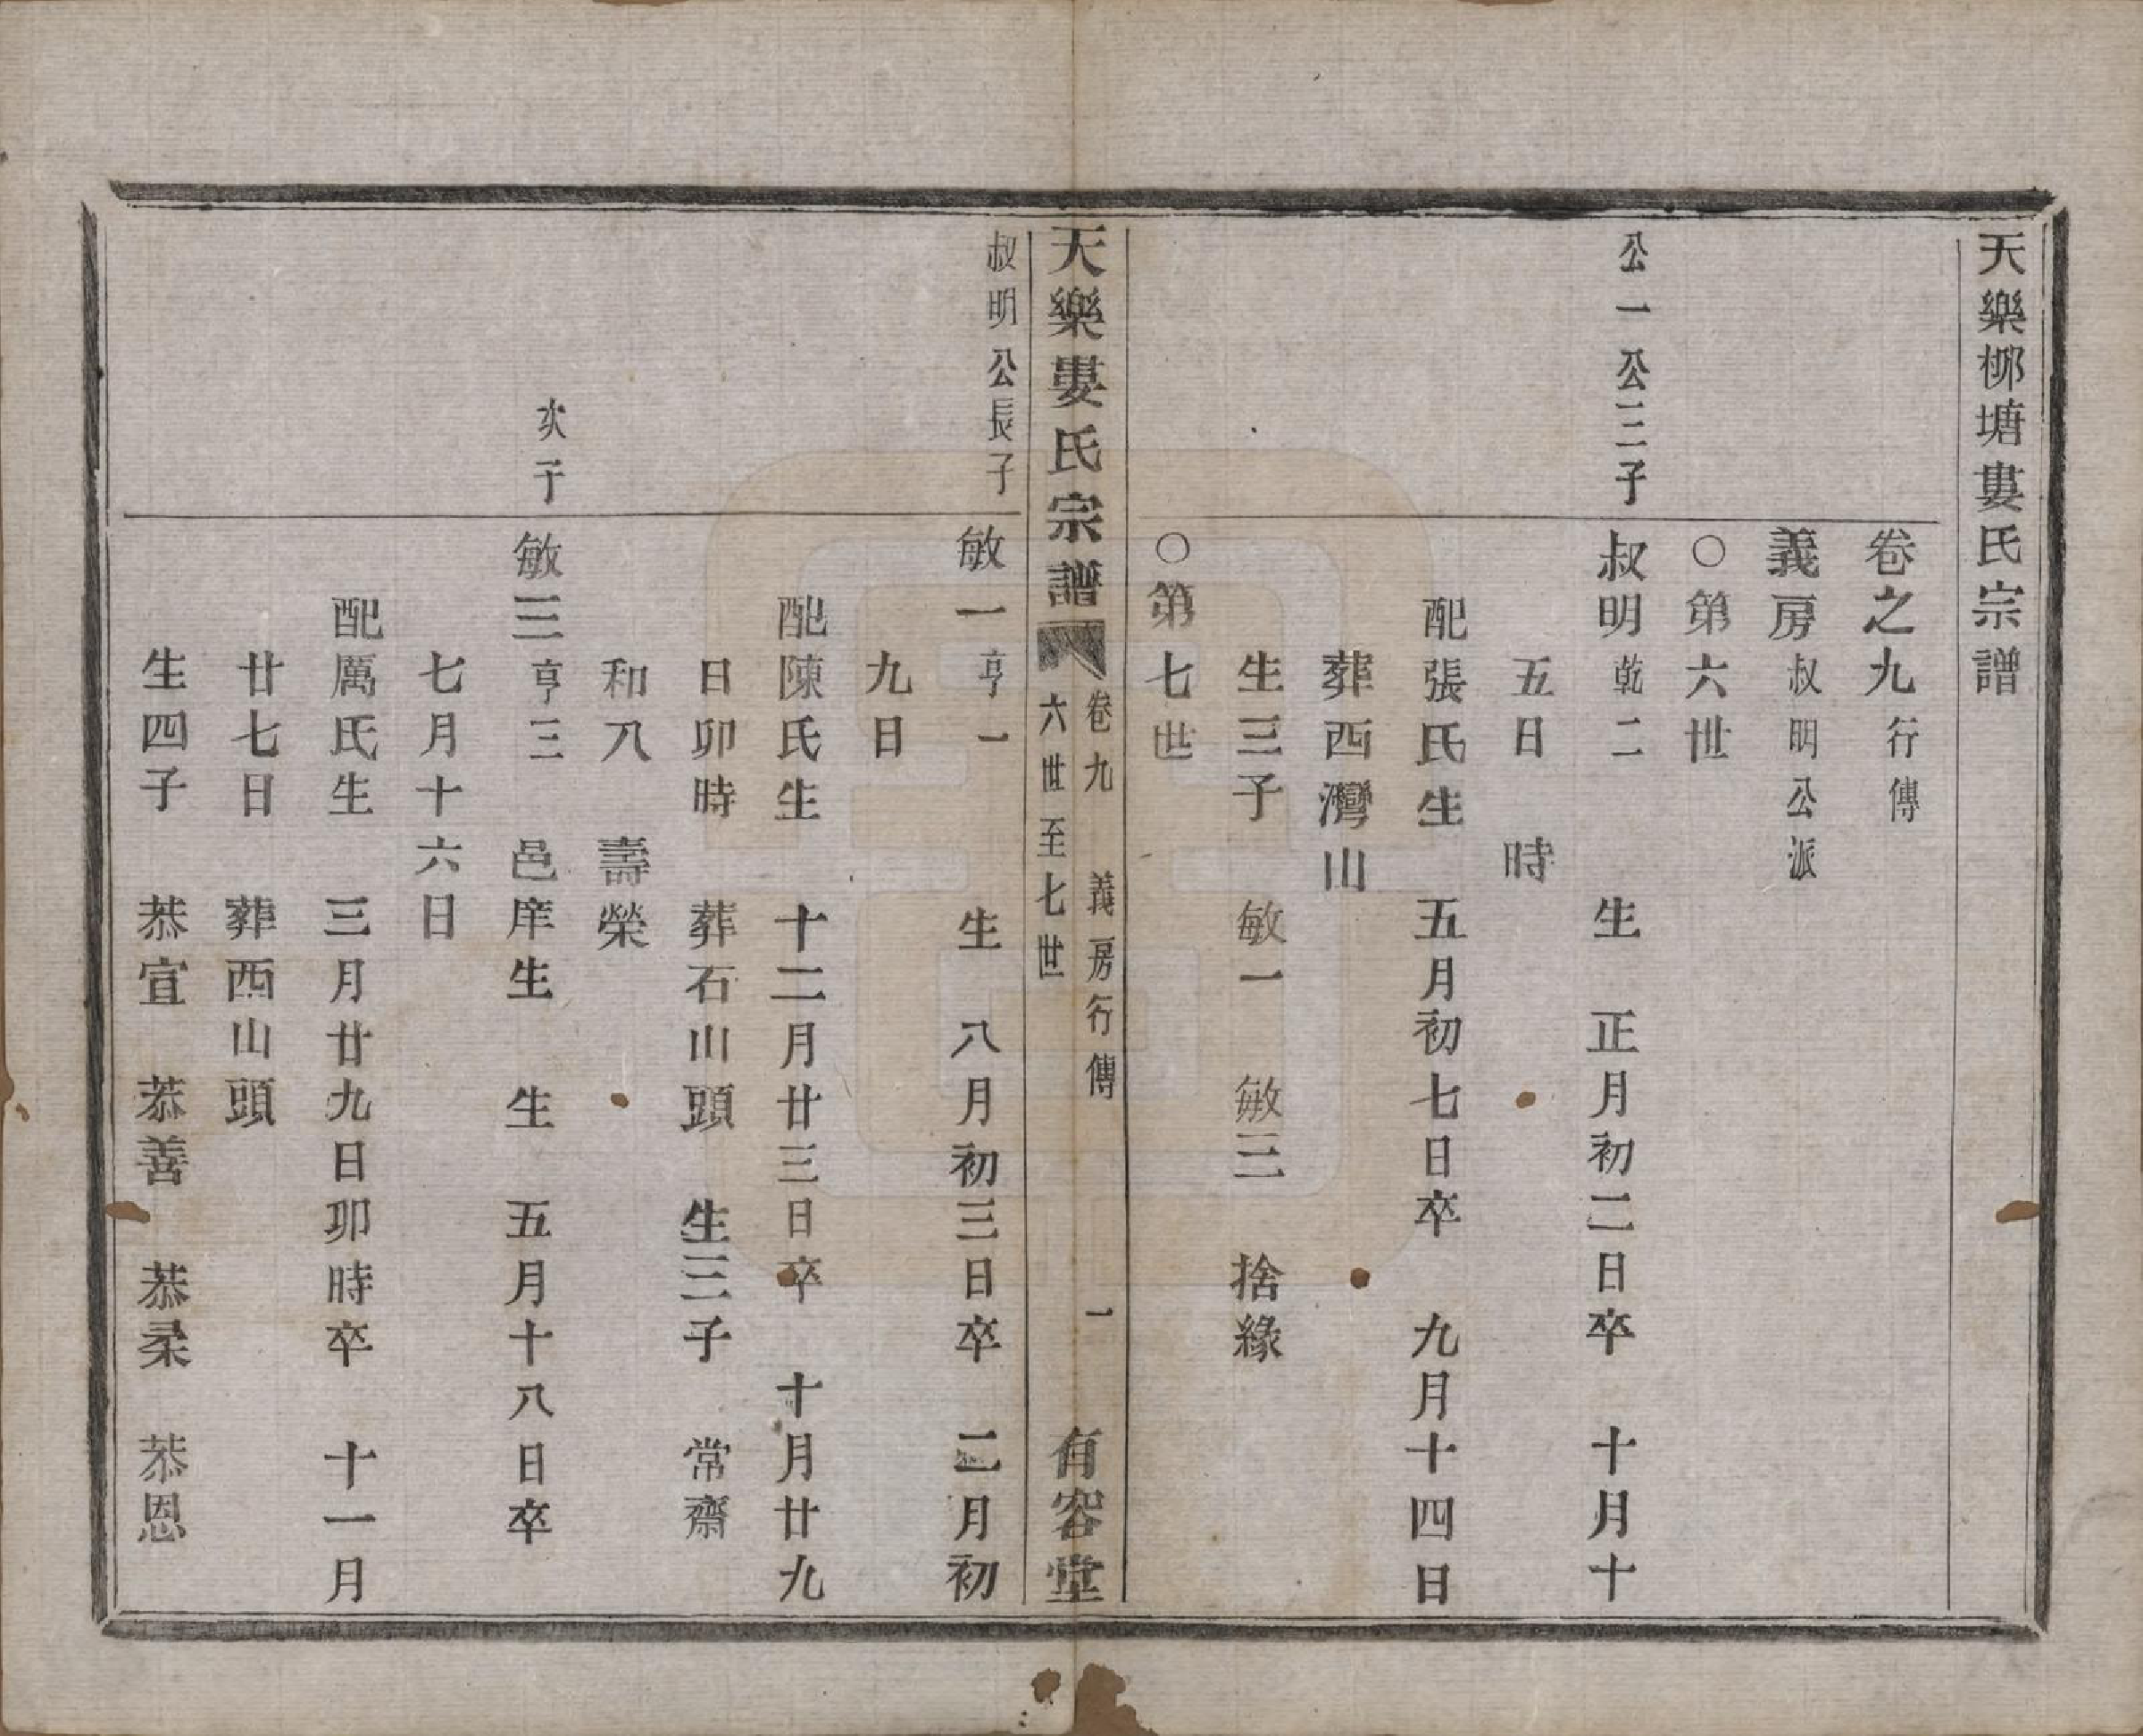 天樂桺塘婁氏宗譜
卷之九 行傳
義房 叔明公派
○第六世
公一公三子
叔明 乾二 生 正月初二日卒 十月十
五日 時
配張氏生 五月初七日卒 九月十四日
葬西灣山
生三子 敏一 敏三 捨緣
○第七世
天樂婁氏宗譜 卷九 義房行傳 一 有容堂
六世至七世
叔明公長子
敏一 亨一 生 八月初三日卒 二月初
九日
配陳氏生 十二月廿三日卒 十月廿九
日卯時 葬石山頭 生三子 常齋
和八 壽榮
次子
敏三 亨三 邑庠生 生 五月十八日卒
七月十六日
配厲氏生 三月廿九日卯時卒 十一月
廿七日 葬西山頭
生四子 恭宣 恭善 恭柔 恭恩